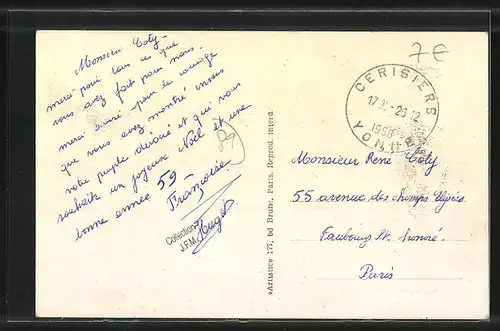 Monsieur Coty -
merci pour tous ce que
vous avez fait pour nous.
merci aussi pour le courage
que vous avez montré envers
votre peuple dévoué et qui vous
souhaite un joyeux Noël et une
bonne année 59
Françoise
Huget
Collection
J.F.M.
89
7€
CERISIERS
17 -26 12
1958
YONNE
«Artistic» 177, bd Brune, Paris. Reprod. interd.
Monsieur René Coty
55 avenue des champs Elysées
Faubourg St. honoré.
Paris